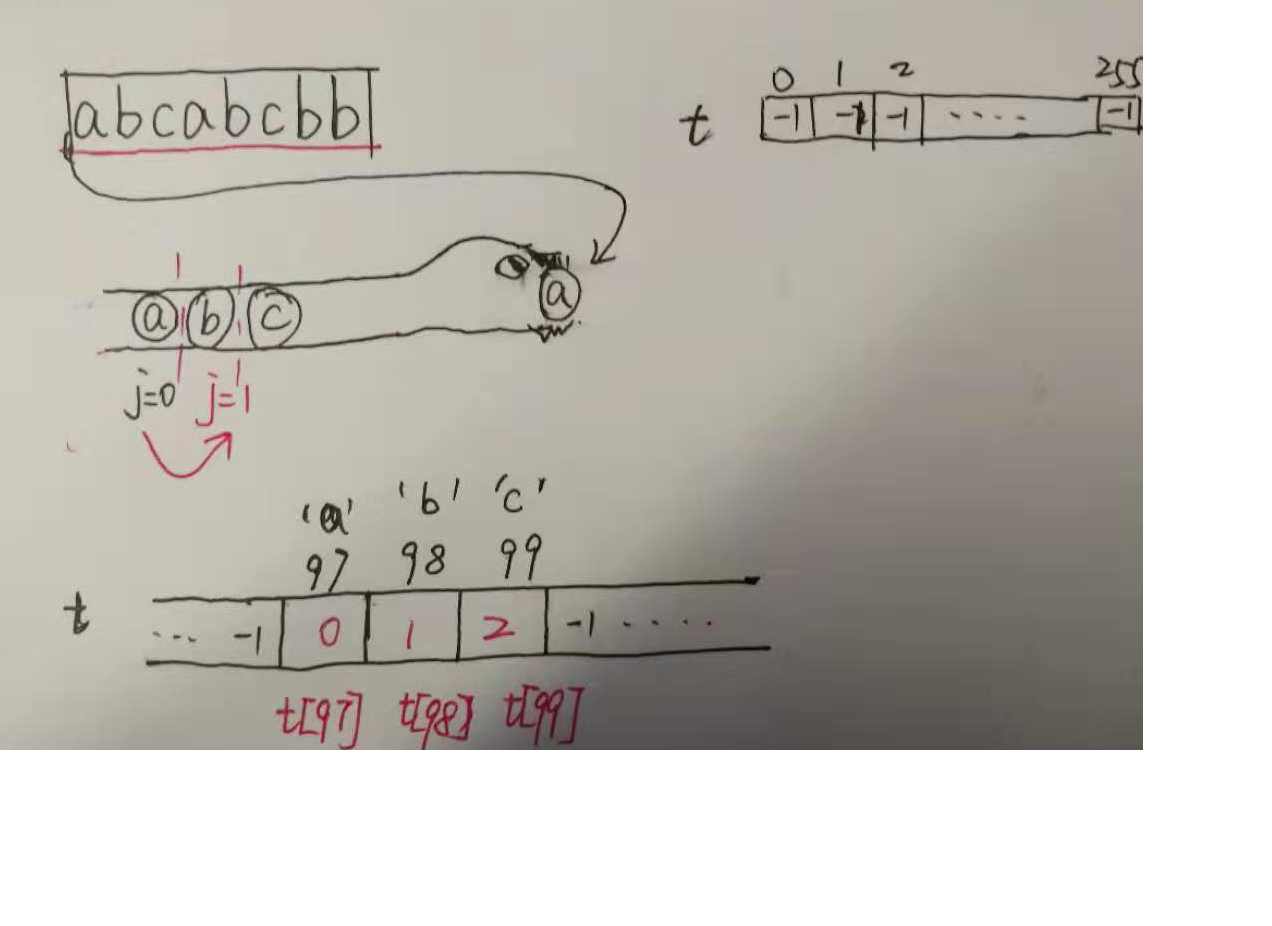 abcabcbb
0 1 2 255
t -1 -1 -1 .... -1
a b c a
j=0 j=1
'a' 'b' 'c'
97 98 99
t ... -1 0 1 2 -1 .....
t[97] t[98] t[99]